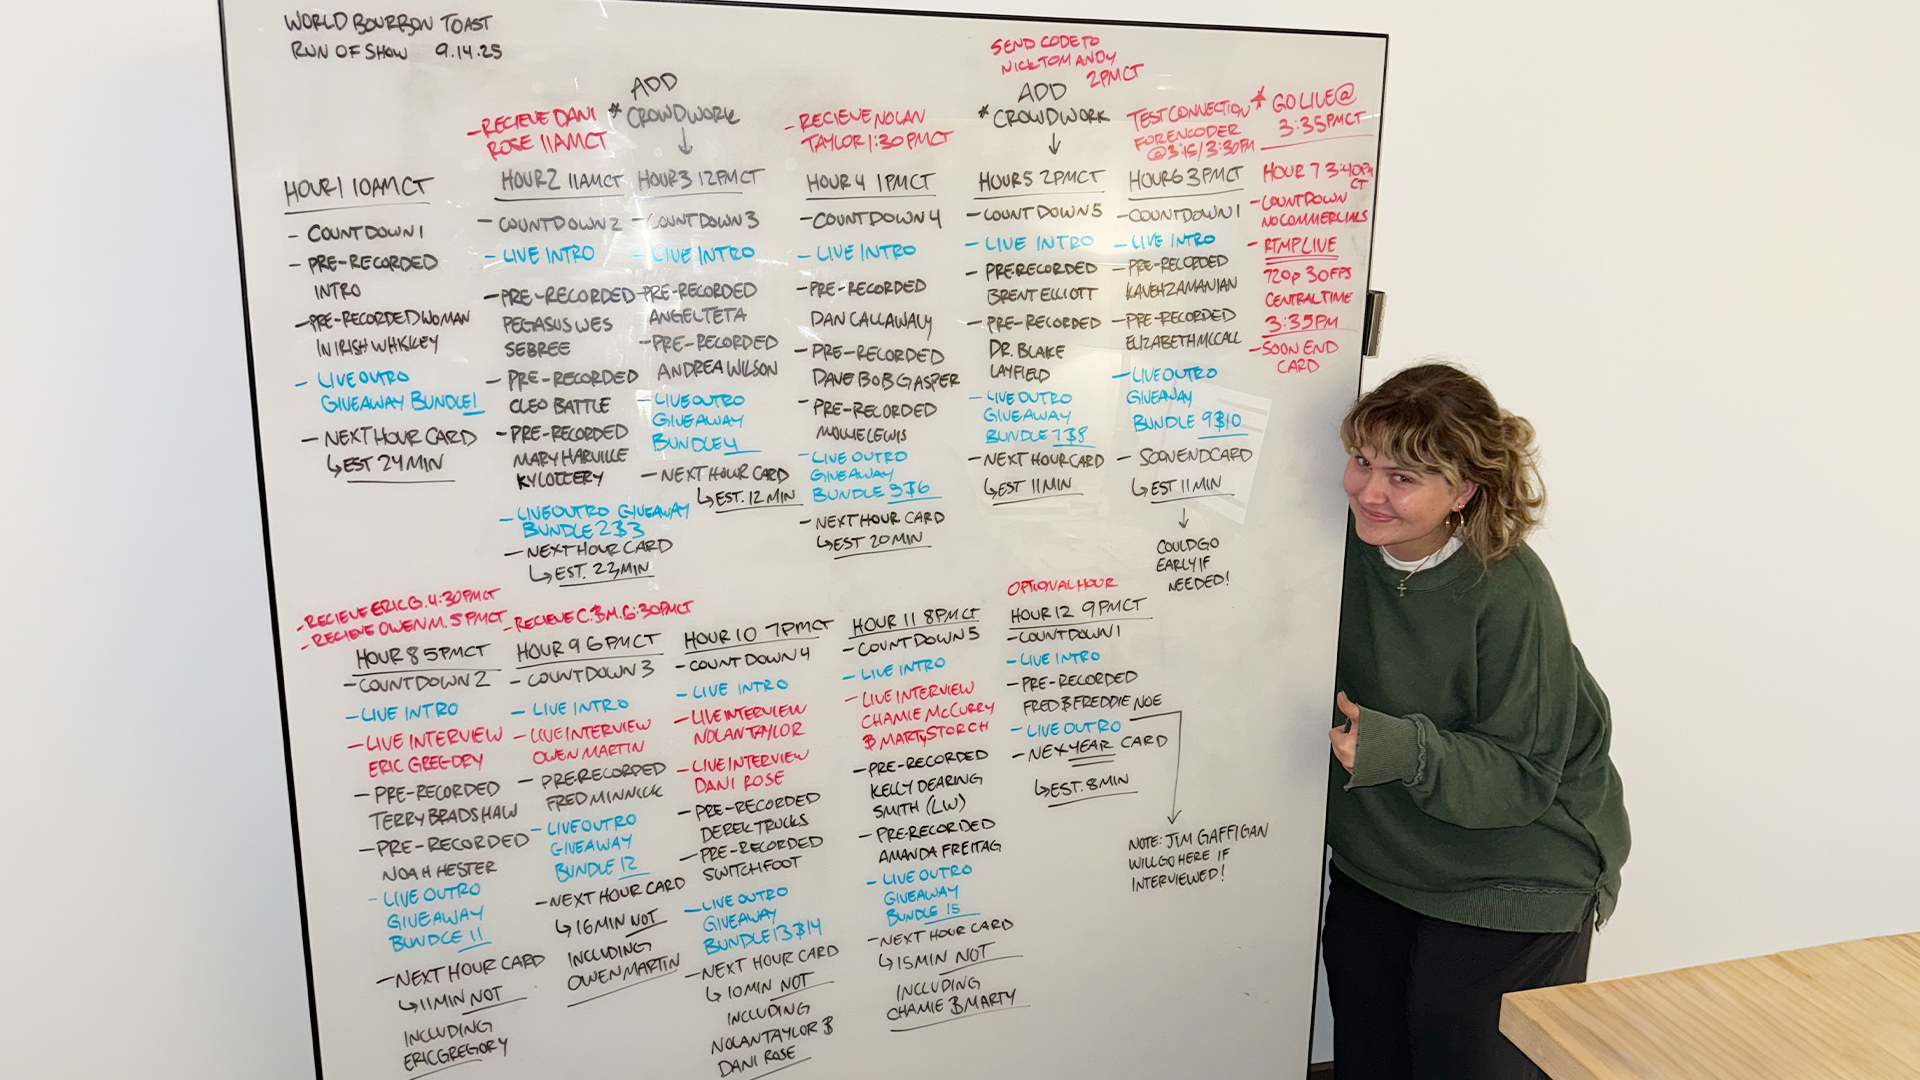 WORLD BOURBON TOAST
RUN OF SHOW 9.14.25
- RECIEVE DANI
ROSE 11AMCT
ADD
* CROWDWORK
- RECIEVE NOLAN
TAYLOR 1:30PMCT
SEND CODE TO
NICK TOM ANDY
2PMCT
ADD
* CROWDWORK
TEST CONNECTION
FOR ENCODER
@3:15/3:30PM
* GO LIVE @
3:35PMCT
HOUR 1 10AMCT
- COUNTDOWN 1
- PRE-RECORDED
INTRO
- PRE-RECORDED WOMAN
IN IRISH WHISKEY
- LIVE OUTRO
GIVEAWAY BUNDLE 1
- NEXT HOUR CARD
↳ EST 24 MIN
HOUR 2 11AMCT
- COUNTDOWN 2
- LIVE INTRO
- PRE-RECORDED
PEGASUS WES
SEBREE
- PRE-RECORDED
CLEO BATTLE
- PRE-RECORDED
MARY HARVILLE
KY LOTTERY
- LIVE OUTRO GIVEAWAY
BUNDLE 2 & 3
- NEXT HOUR CARD
↳ EST. 22 MIN
HOUR 3 12PMCT
- COUNTDOWN 3
- LIVE INTRO
- PRE-RECORDED
ANGEL TETA
- PRE-RECORDED
ANDREA WILSON
- LIVE OUTRO
GIVEAWAY
BUNDLE 4
- NEXT HOUR CARD
↳ EST. 12 MIN
HOUR 4 1PMCT
- COUNTDOWN 4
- LIVE INTRO
- PRE-RECORDED
DAN CALLAWAY
- PRE-RECORDED
DAVE BOB GASPER
- PRE-RECORDED
MOLLIE LEWIS
- LIVE OUTRO
GIVEAWAY
BUNDLE 5 & 6
- NEXT HOUR CARD
↳ EST 20 MIN
HOUR 5 2PMCT
- COUNTDOWN 5
- LIVE INTRO
- PRERECORDED
BRENT ELLIOTT
- PRE-RECORDED
DR. BLAKE
LAYFIELD
- LIVE OUTRO
GIVEAWAY
BUNDLE 7 & 8
- NEXT HOUR CARD
↳ EST 11 MIN
HOUR 6 3PMCT
- COUNTDOWN 1
- LIVE INTRO
- PRE-RECORDED
KAVEH ZAMANIAN
- PRE-RECORDED
ELIZABETH MCCALL
- LIVE OUTRO
GIVEAWAY
BUNDLE 9 & 10
- SOON END CARD
↳ EST 11 MIN
↓
COULD GO
EARLY IF
NEEDED!
HOUR 7 3:40PM
CT
- COUNTDOWN
NO COMMERCIALS
- RTMP LIVE
720p 30FPS
CENTRAL TIME
3:35PM
- SOON END
CARD
- RECIEVE ERIC G. 4:30PMCT
- RECIEVE OWEN M. 5PMCT
HOUR 8 5PMCT
- COUNTDOWN 2
- LIVE INTRO
- LIVE INTERVIEW
ERIC GREGORY
- PRE-RECORDED
TERRY BRADSHAW
- PRE-RECORDED
NOAH HESTER
- LIVE OUTRO
GIVEAWAY
BUNDLE 11
- NEXT HOUR CARD
↳ 11 MIN NOT
INCLUDING
ERIC GREGORY
- RECIEVE C. & M. 6:30PMCT
HOUR 9 6PMCT
- COUNTDOWN 3
- LIVE INTRO
- LIVE INTERVIEW
OWEN MARTIN
- PRERECORDED
FRED MINNICK
- LIVE OUTRO
GIVEAWAY
BUNDLE 12
- NEXT HOUR CARD
↳ 16 MIN NOT
INCLUDING
OWEN MARTIN
HOUR 10 7PMCT
- COUNTDOWN 4
- LIVE INTRO
- LIVE INTERVIEW
NOLAN TAYLOR
- LIVE INTERVIEW
DANI ROSE
- PRE-RECORDED
DEREK TRUCKS
- PRE-RECORDED
SWITCHFOOT
- LIVE OUTRO
GIVEAWAY
BUNDLE 13 & 14
- NEXT HOUR CARD
↳ 10 MIN NOT
INCLUDING
NOLAN TAYLOR &
DANI ROSE
HOUR 11 8PMCT
- COUNTDOWN 5
- LIVE INTRO
- LIVE INTERVIEW
CHAMIE MCCURRY
& MARTY STORCH
- PRE-RECORDED
KELLY DEARING
SMITH (LW)
- PRE-RECORDED
AMANDA FREITAG
- LIVE OUTRO
GIVEAWAY
BUNDLE 15
- NEXT HOUR CARD
↳ 15 MIN NOT
INCLUDING
CHAMIE & MARTY
OPTIONAL HOUR
HOUR 12 9PMCT
- COUNTDOWN 1
- LIVE INTRO
- PRE-RECORDED
FRED & FREDDIE NOE
- LIVE OUTRO
- NEXYEAR CARD
↳ EST. 8 MIN
NOTE: JIM GAFFIGAN
WILL GO HERE IF
INTERVIEWED!